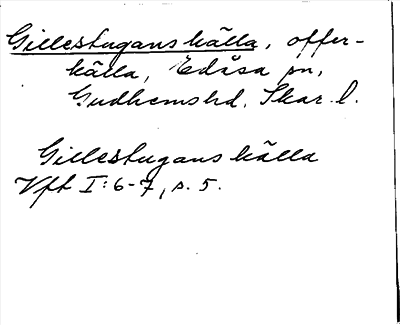 Gillestugans källa, offer-
källa, Edåsa sn,
Gudhems hd. Skar. l.
Gillestugans källa
Vft I:6-7, s. 5.